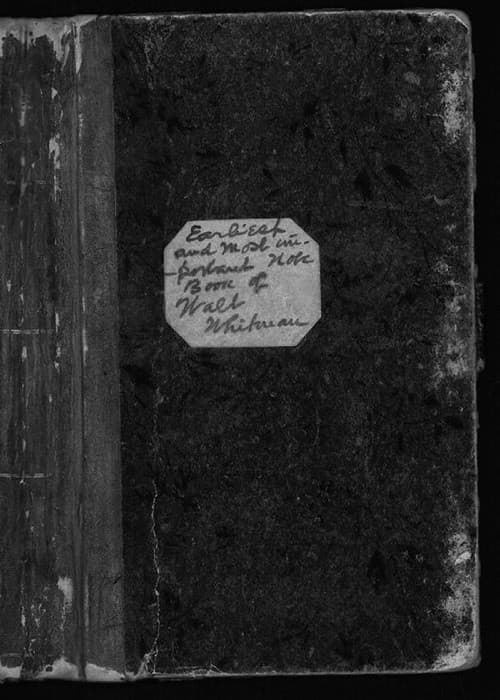 Earliest
and Most im-
-portant Note
Book of
Walt
Whitman